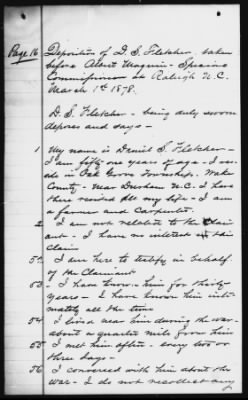 Page 16 Deposition of D. S. Fletcher, taken
before Albert Magruin - Special
Commissioner at Raleigh N.C.
March 1st 1878.
D. S. Fletcher - being duly sworn
deposes and says -
1 My name is Daniel S. Fletcher -
I am fifty one years of age - I resi
de in Oak Grove Township. Wake
County - Near Durham N.C. I have
there resided all my life - I am
a farmer and Carpenter.
2 I am not relative to the Claim
ant - I have no interest in this
Claim
51 I am here to testify in behalf
of the Claimant
53 - I have know - him for thirty
years - I have known him inti
mately all the time
54 I lived near him during the war -
about a quarter mile from him
55 I met him often - every two or
three days -
56 I conversed with him about the
war - I do not recollect any